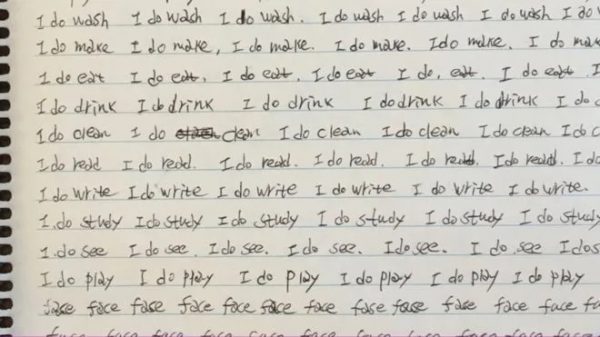 I do wash I do wash I do wash. I do wash I do wash I do wash I do
I do make I do make, I do make. I do make. I do make. I do
I do eat I do eat, I do eat. I do eat I do, eat. I do eat
I do drink I do drink I do drink I do drink I do drink I do
I do clean I do clean I do clean I do clean I do clean I do
I do read I do read. I do read. I do read. I do read. I do read. I do
I do write I do write I do write I do write I do write I do write.
I.do study I do study I do study I do study I do study I do study
I.do see I do see. I do see. I do see. I do see. I do see I do
I do play I do play I do play I do play I do play I do play
face face face face face face face fase face face face face